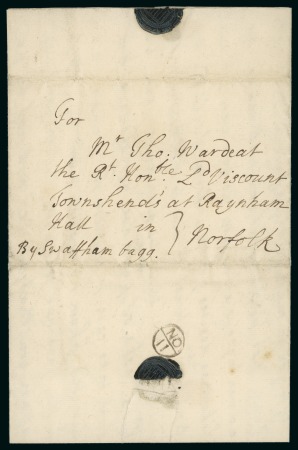 For
Mr Tho: Wardeat
the Rt. Honble Ld Viscount
Townshend's at Raynham
Hall in } Norfolk
By Swaffham bagg.
NO
11